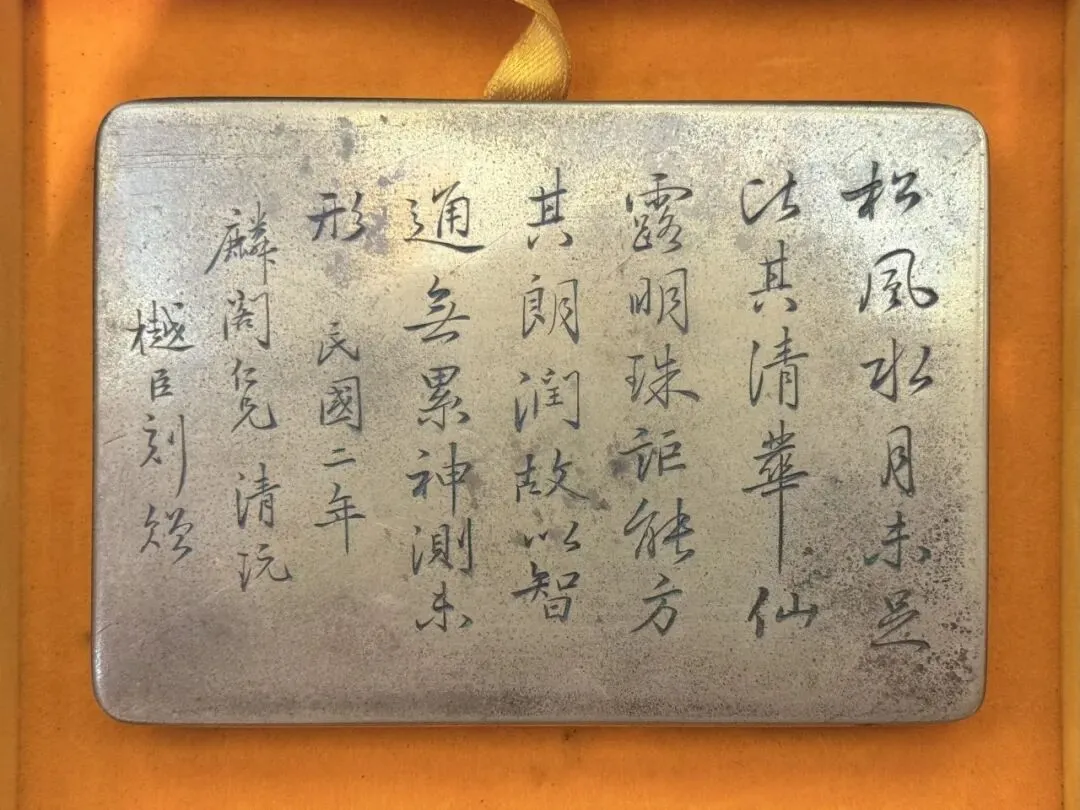 松風水月未足
比其清華仙
露明珠詎能方
其朗潤故以智
通無累神測未
形 民國二年
麟閣仁兄 清玩
樾臣刻贈